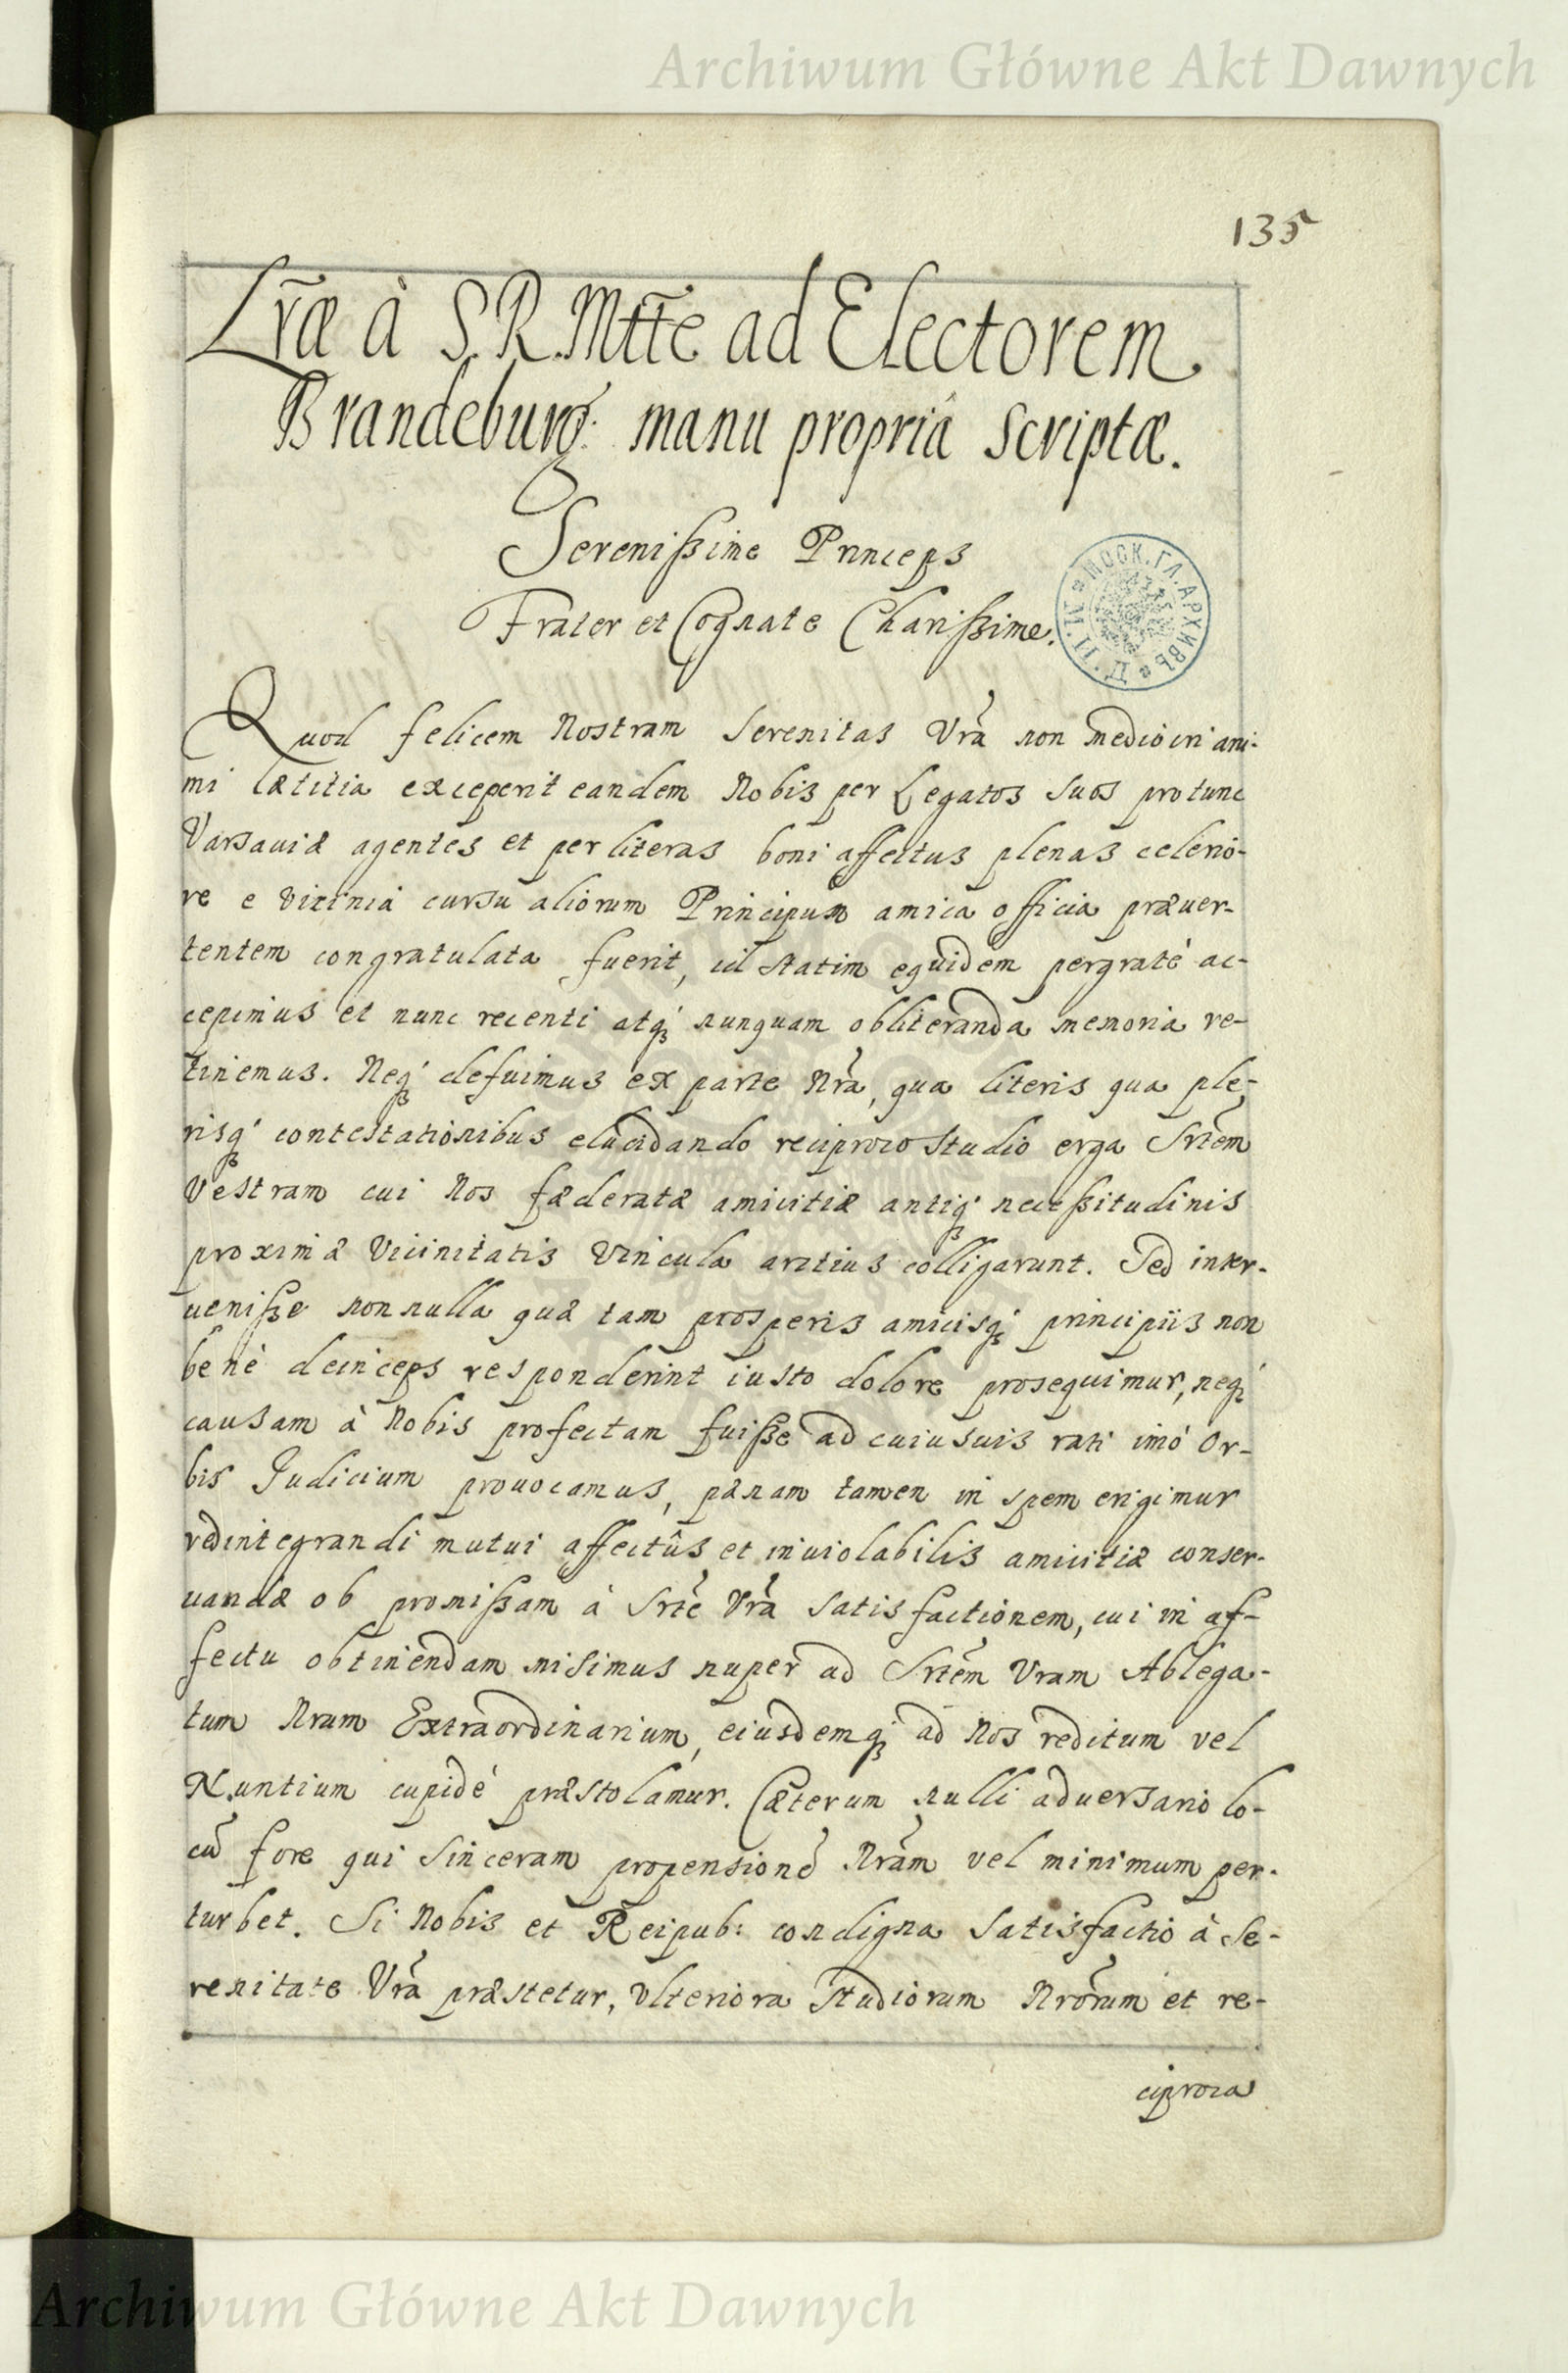 Archiwum Główne Akt Dawnych
135
Lr̃æ à S. R. Mtt̃e ad Electorem
Brandeburg: manu propriâ scriptæ.
Sereniſsime Princeps
Frater et Cognate Chariſsime.
МОСК. ГЛ. АРХИВЪ М. И. Д.
Quod felicem Nostram Serenitas Vr̃a non mediocri ani-
mi lætitia exceperit eandem Nobis per Legatos suos protunc
Varsaviæ agentes et per literas boni affectus plenas celerio-
re e vicinia cursu aliorum Principum amica officia præver-
tentem congratulata fuerit, id statim equidem pergraté ac-
cepimus et nunc recenti atq́ nunquam obliteranda memoria re-
tinemus. Neq́ defuimus ex parte Nr̃a, qua literis qua ple-
risq́ contestationibus elucidando reciproco studio erga Srt̃em
Vestram cui Nos fæderatæ amicitiæ antiq́ neceſsitudinis
proximæ vicinitatis vincula arctius colligarunt. Sed inter-
veniſse nonnulla quæ tam prosperis amicisq́ principiis non
bené deinceps responderint iusto dolore prosequimur, neq́
causam à Nobis profectam fuiſse ad cuiusvis rati imó Or-
bis Judicium provocamus, pænam tamen in spem erigimur
redintegrandi mutui affectûs et inviolabilis amicitiæ conser-
vandæ ob promiſsam à Srt̃e Vr̃a satisfactionem, cui in af-
fectu obtinendam misimus nuper ad Srt̃em Vram Ablega-
tum Nrum Extraordinarium, eiusdemq́ ad Nos reditum vel
Nuntium cupidé præstolamur. Cæterum nulli adversario lo-
cũ fore qui sinceram propensionẽ Nr̃am vel minimum per-
turbet. Si Nobis et Reipub: condigna satisfactio à Se-
renitate Vr̃a præstetur, ulteriora studiorum Nrõrum et re-
ciproca
Archiwum Główne Akt Dawnych